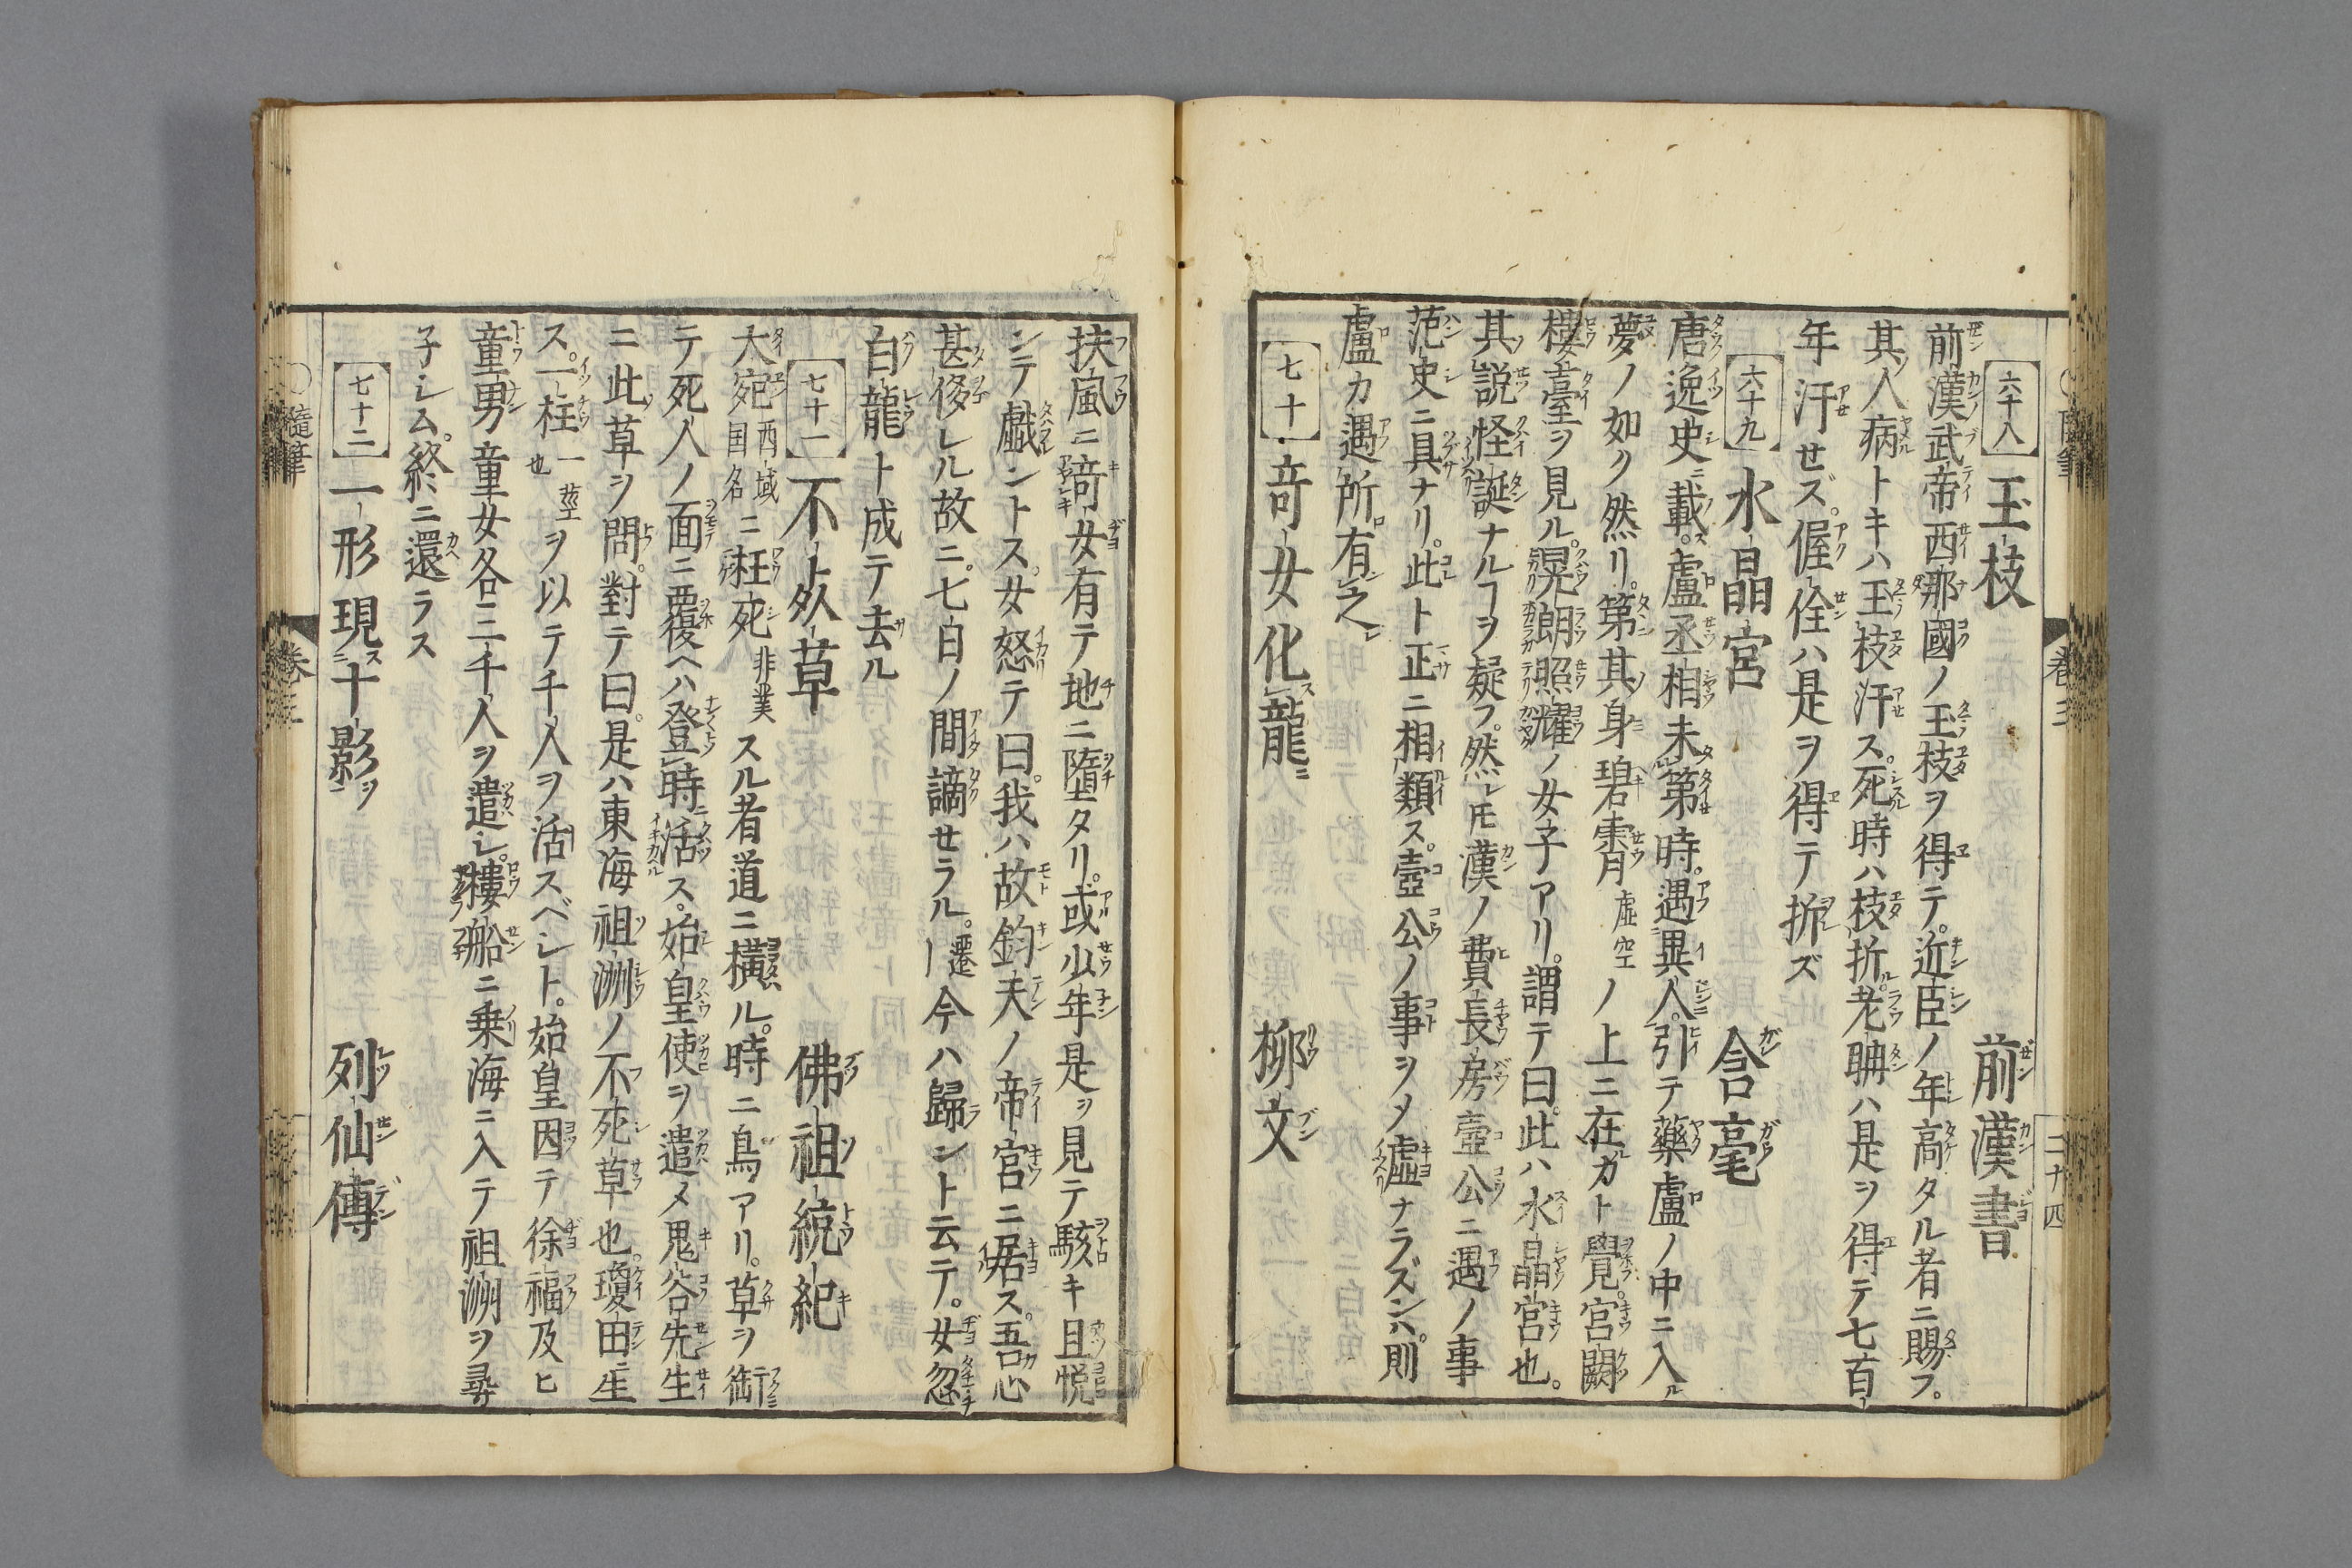 六十八 玉枝 前漢書
前漢武帝西那國ノ玉枝ヲ得テ。近臣ノ年高タル者ニ賜フ。
其人病トキハ玉枝汗ス。死時ハ枝折。老聃ハ是ヲ得テ七百
年汗セズ。偓佺ハ是ヲ得テ折ズ
六十九 水晶宮 含毫
唐逸史ニ載。盧丞相未第時。遇異人。引テ藥盧ノ中ニ入ル
夢ノ如ク然リ。第其身碧霄虚空ノ上ニ在カト覺。宮闕
樓臺ヲ見ル。晃朗照耀ノ女子アリ。謂テ曰。此ハ水晶宮也。
其説怪誕ナルヿヲ疑フ。然レ𪜈漢ノ費長房壺公ニ遇ノ事
范史ニ具ナリ。此ト正ニ相類ス。壺公ノ事ヲ〆虚ナラズンハ。則
盧カ遇所有之
七十 竒女化龍 柳文
扶風ニ竒女有テ地ニ墮タリ。或少年是ヲ見テ駭キ且悦
ンテ戲ントス。女怒テ曰。我ハ故鈞天ノ帝宮ニ居ス。吾心
甚侈レル故ニ。七日ノ間謫セラル。遷 今ハ歸ント云テ。女忽
白龍ト成テ去ル
七十一 不死草 佛祖統紀
大宛西域国名ニ枉死非業スル者道ニ横ル。時ニ鳥アリ。草ヲ銜
テ死人ノ面ニ覆ヘハ登時ニ活ス。始皇使ヲ遣〆鬼谷先生
ニ此草ヲ問。對テ曰。是ハ東海祖洲ノ不死草也。瓊田ニ生
ス。一枉一莖也ヲ以テ千人ヲ活スベシト。始皇因テ徐福及ヒ
童男童女各三千人ヲ遣シ。樓船ニ乗海ニ入テ祖洲ヲ尋
子シム。終ニ還ラス
七十二 一形現十影ヲ 列仙傳
隨筆 卷三
卷三 二十四